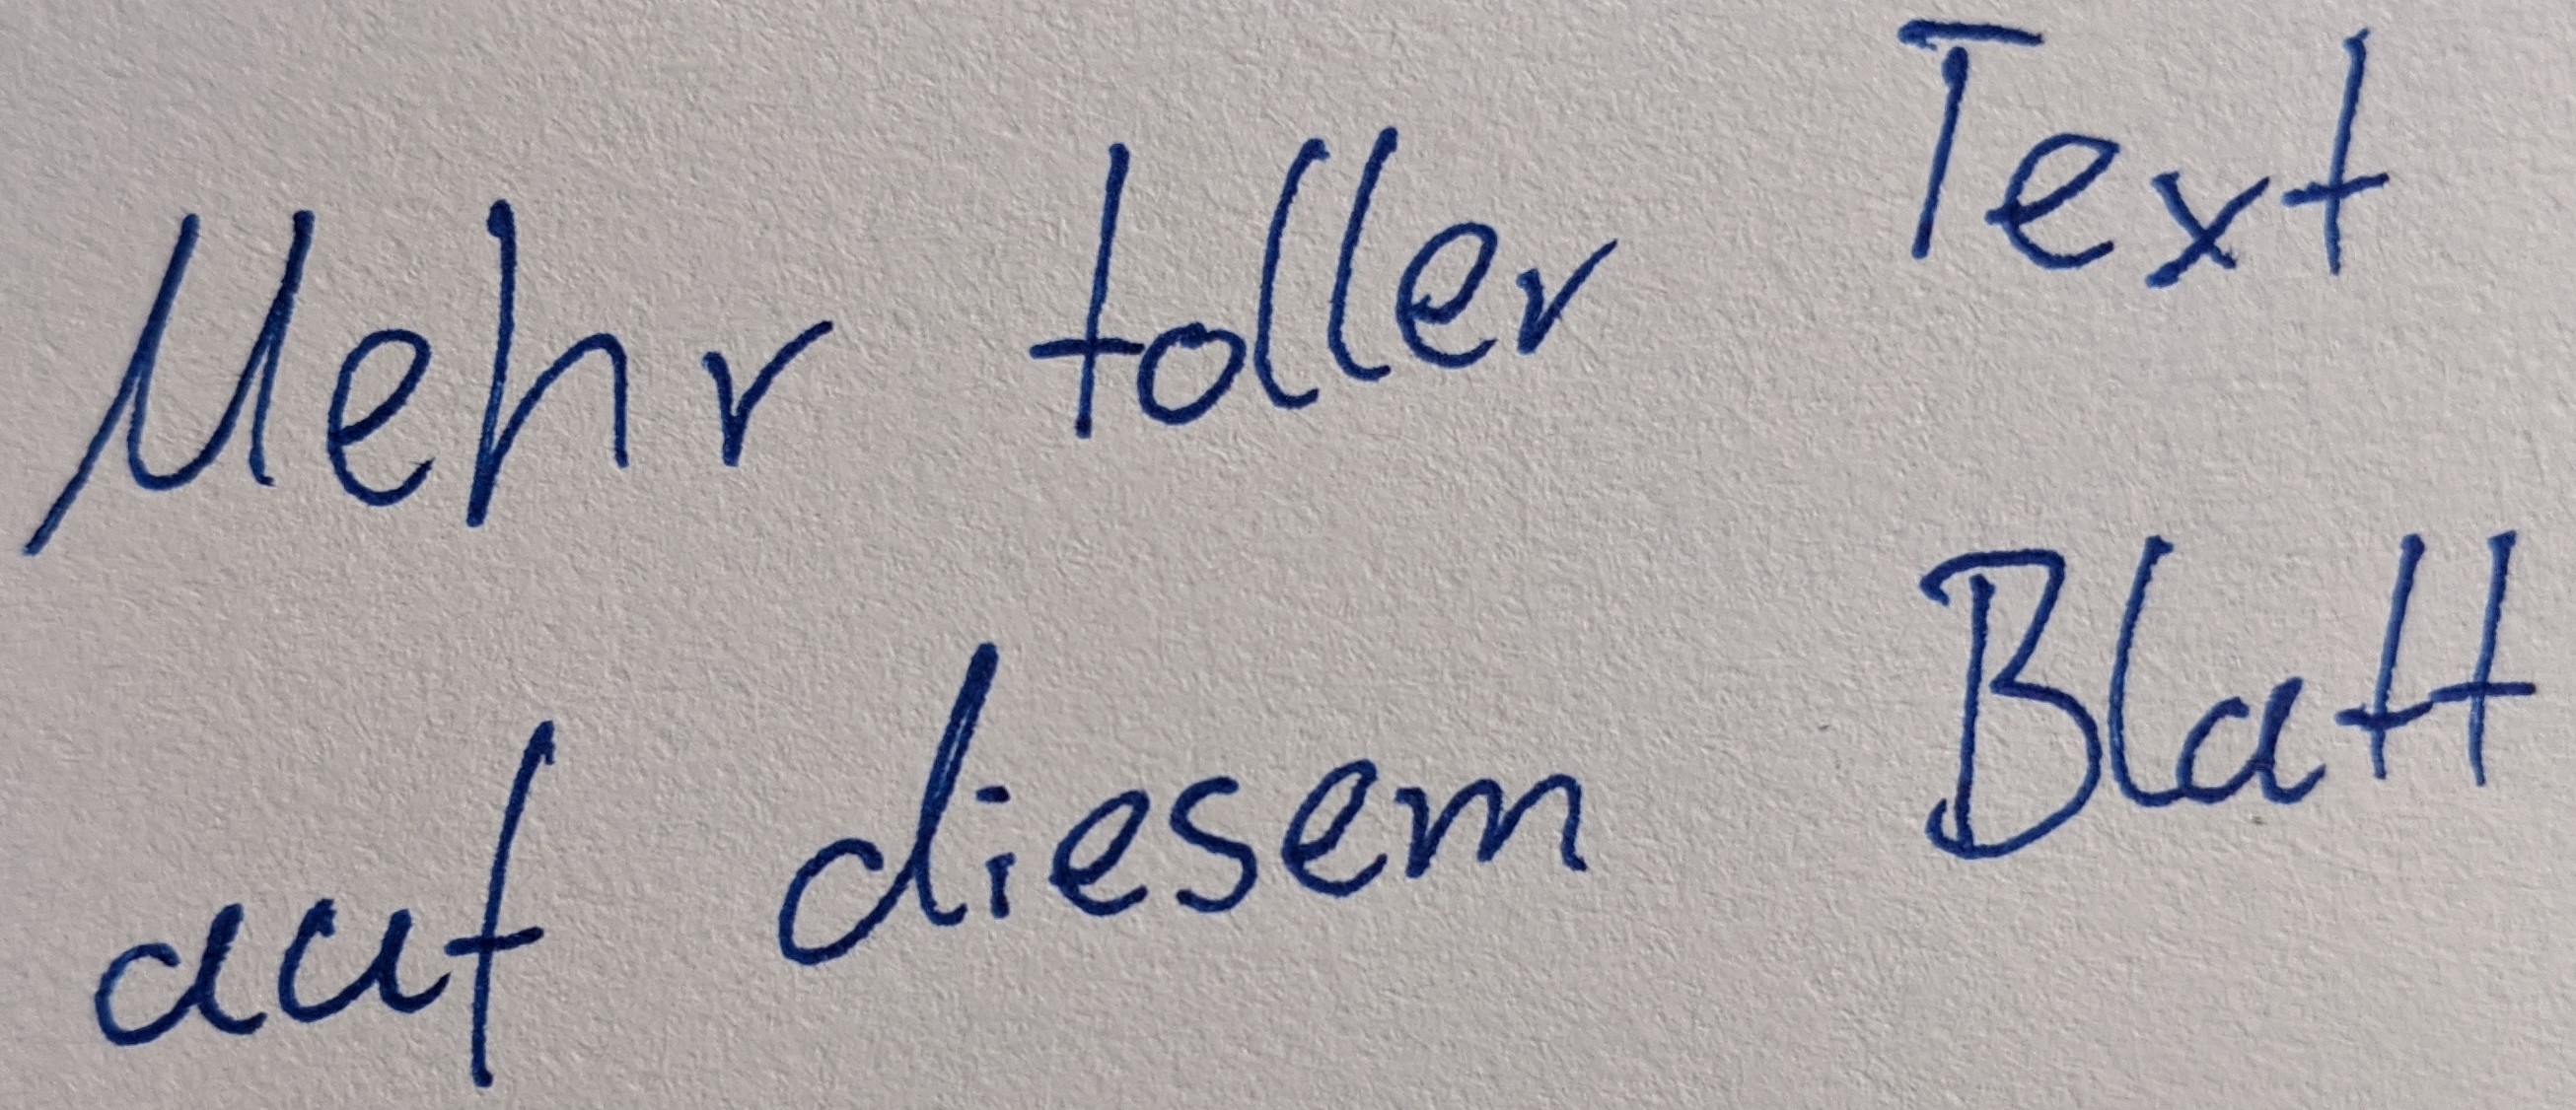 Mehr toller Text
auf diesem Blatt